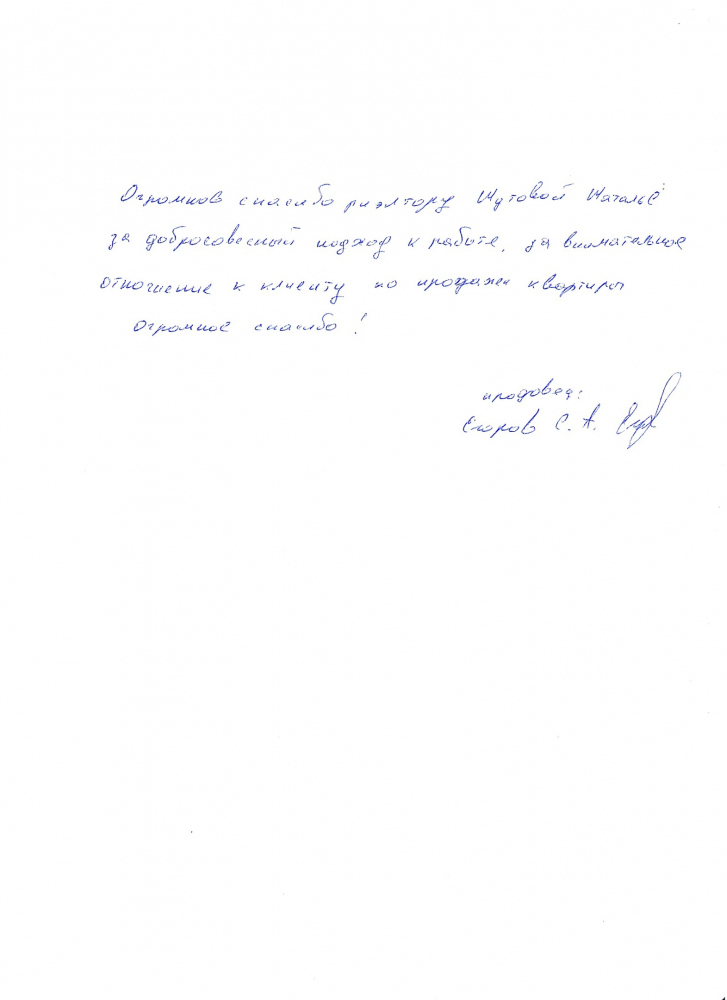 Огромное спасибо риэлтору Шутовой Наталье
за добросовесный подход к работе, за внимательное
отношение к клиенту по продаже квартиры
огромное спасибо!
продовец:
Егоров С. А.